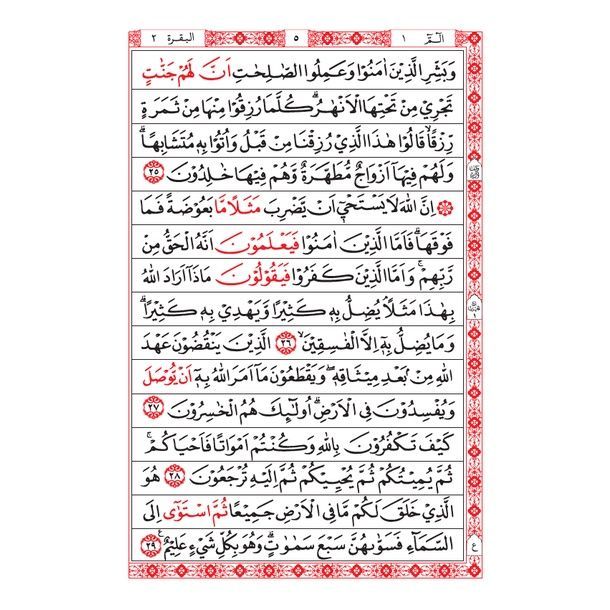 الٓمّٓ ١ ٥ البقرة ٢
وَبَشِّرِ الَّذِيْنَ اٰمَنُوْا وَعَمِلُوا الصّٰلِحٰتِ اَنَّ لَهُمْ جَنّٰتٍ
تَجْرِيْ مِنْ تَحْتِهَا الْاَنْهٰرُ ؕ كُلَّمَا رُزِقُوْا مِنْهَا مِنْ ثَمَرَةٍ
رِّزْقًا ۙ قَالُوْا هٰذَا الَّذِيْ رُزِقْنَا مِنْ قَبْلُ وَاُتُوْا بِهٖ مُتَشَابِهًا ؕ
وَلَهُمْ فِيْهَاۤ اَزْوَاجٌ مُّطَهَّرَةٌ وَّهُمْ فِيْهَا خٰلِدُوْنَ ٢٥
اِنَّ اللّٰهَ لَا يَسْتَحْيٖۤ اَنْ يَّضْرِبَ مَثَلًا مَّا بَعُوْضَةً فَمَا
فَوْقَهَا ؕ فَاَمَّا الَّذِيْنَ اٰمَنُوْا فَيَعْلَمُوْنَ اَنَّهُ الْحَقُّ مِنْ
رَّبِّهِمْ ۚ وَاَمَّا الَّذِيْنَ كَفَرُوْا فَيَقُوْلُوْنَ مَاذَاۤ اَرَادَ اللّٰهُ
بِهٰذَا مَثَلًا ۘ يُضِلُّ بِهٖ كَثِيْرًا وَّيَهْدِيْ بِهٖ كَثِيْرًا ؕ
وَمَا يُضِلُّ بِهٖۤ اِلَّا الْفٰسِقِيْنَ ۙ ٢٦ الَّذِيْنَ يَنْقُضُوْنَ عَهْدَ
اللّٰهِ مِنْۢ بَعْدِ مِيْثَاقِهٖ ۪ وَيَقْطَعُوْنَ مَاۤ اَمَرَ اللّٰهُ بِهٖۤ اَنْ يُّوْصَلَ
وَيُفْسِدُوْنَ فِي الْاَرْضِ ؕ اُولٰٓئِكَ هُمُ الْخٰسِرُوْنَ ٢٧
كَيْفَ تَكْفُرُوْنَ بِاللّٰهِ وَكُنْتُمْ اَمْوَاتًا فَاَحْيَاكُمْ ۚ
ثُمَّ يُمِيْتُكُمْ ثُمَّ يُحْيِيْكُمْ ثُمَّ اِلَيْهِ تُرْجَعُوْنَ ٢٨ هُوَ
الَّذِيْ خَلَقَ لَكُمْ مَّا فِي الْاَرْضِ جَمِيْعًا ۗ ثُمَّ اسْتَوٰۤى اِلَى
السَّمَآءِ فَسَوّٰىهُنَّ سَبْعَ سَمٰوٰتٍ ؕ وَهُوَ بِكُلِّ شَيْءٍ عَلِيْمٌ ٢٩
ع